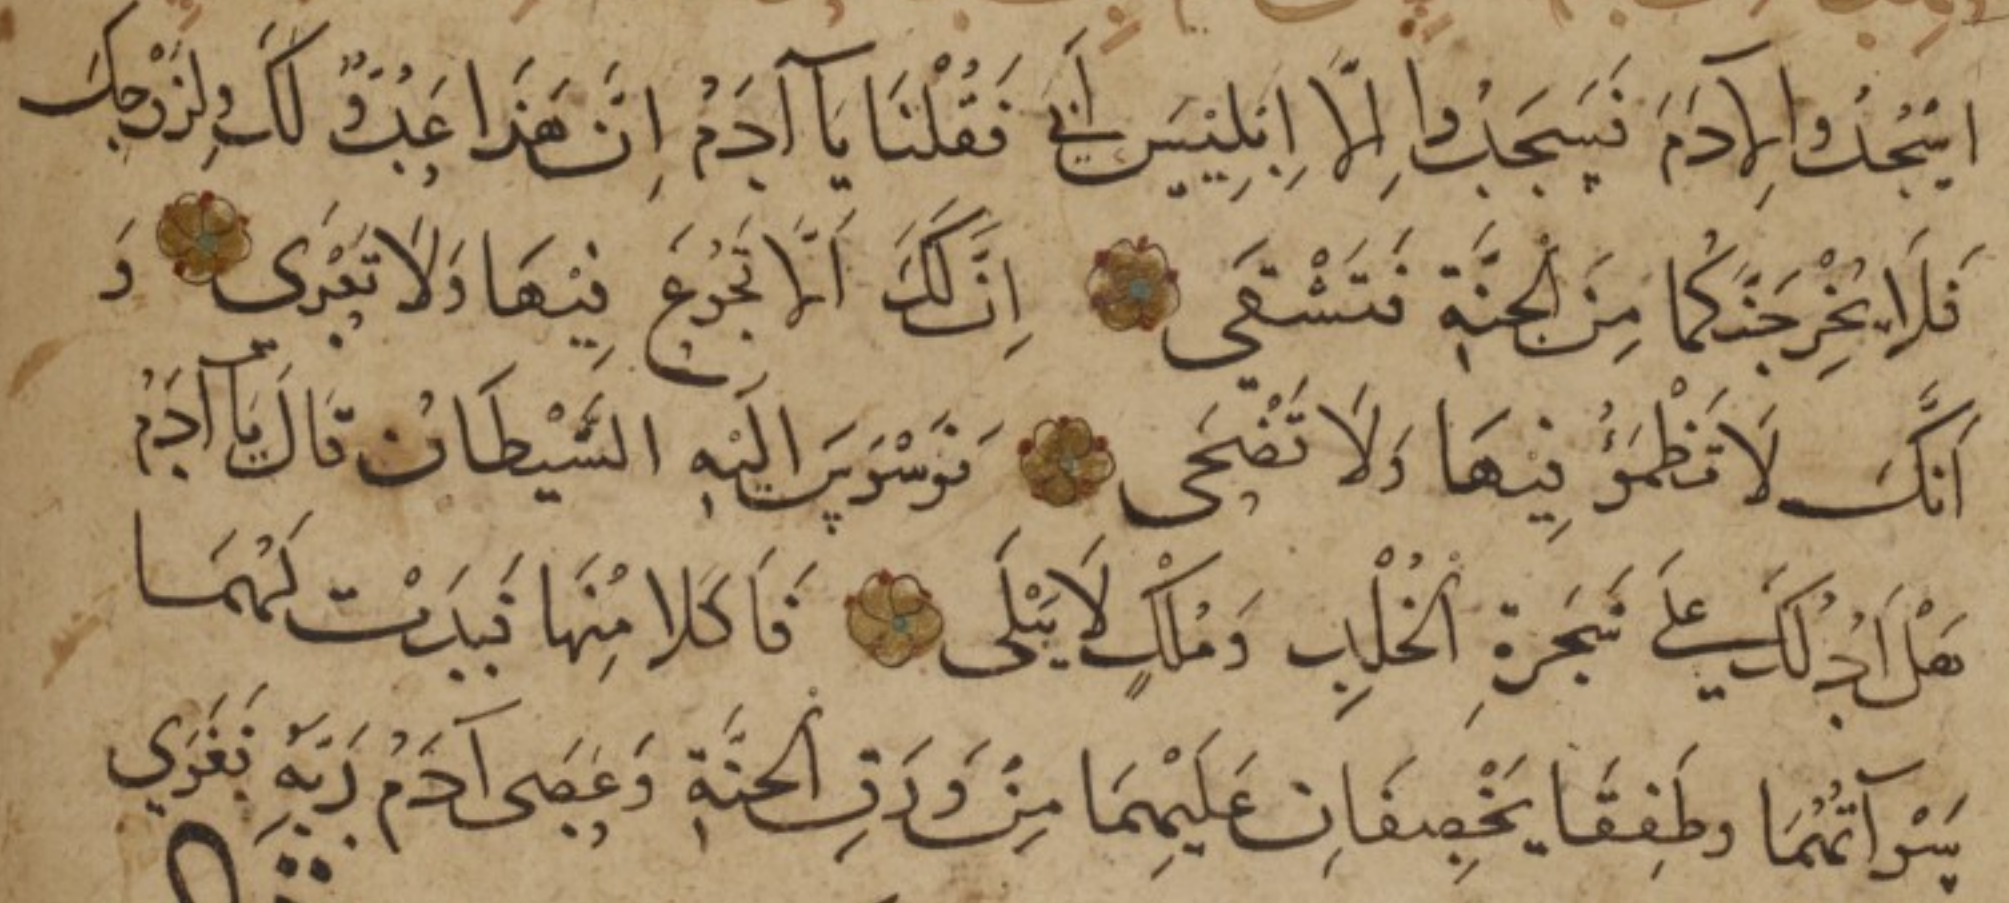 اسْجُدُوا لِآدَمَ فَسَجَدُوا إِلَّا إِبْلِيسَ أَبَى فَقُلْنَا يَا آدَمُ إِنَّ هَذَا عَدُوٌّ لَكَ وَلِزَوْجِكَ
فَلَا يُخْرِجَنَّكُمَا مِنَ الْجَنَّةِ فَتَشْقَى إِنَّ لَكَ أَلَّا تَجُوعَ فِيْهَا وَلَا تَعْرَى وَ
أَنَّكَ لَا تَظْمَؤُ فِيْهَا وَلَا تَضْحَى فَوَسْوَسَ إِلَيْهِ الشَّيْطَانُ قَالَ يَا آدَمُ
هَلْ أَدُلُّكَ عَلَى شَجَرَةِ الْخُلْدِ وَمُلْكٍ لَا يَبْلَى فَأَكَلَا مِنْهَا فَبَدَتْ لَهُمَا
سَوْآتُهُمَا وَطَفِقَا يَخْصِفَانِ عَلَيْهِمَا مِنْ وَرَقِ الْجَنَّةِ وَعَصَى آدَمُ رَبَّهُ فَغَوَى